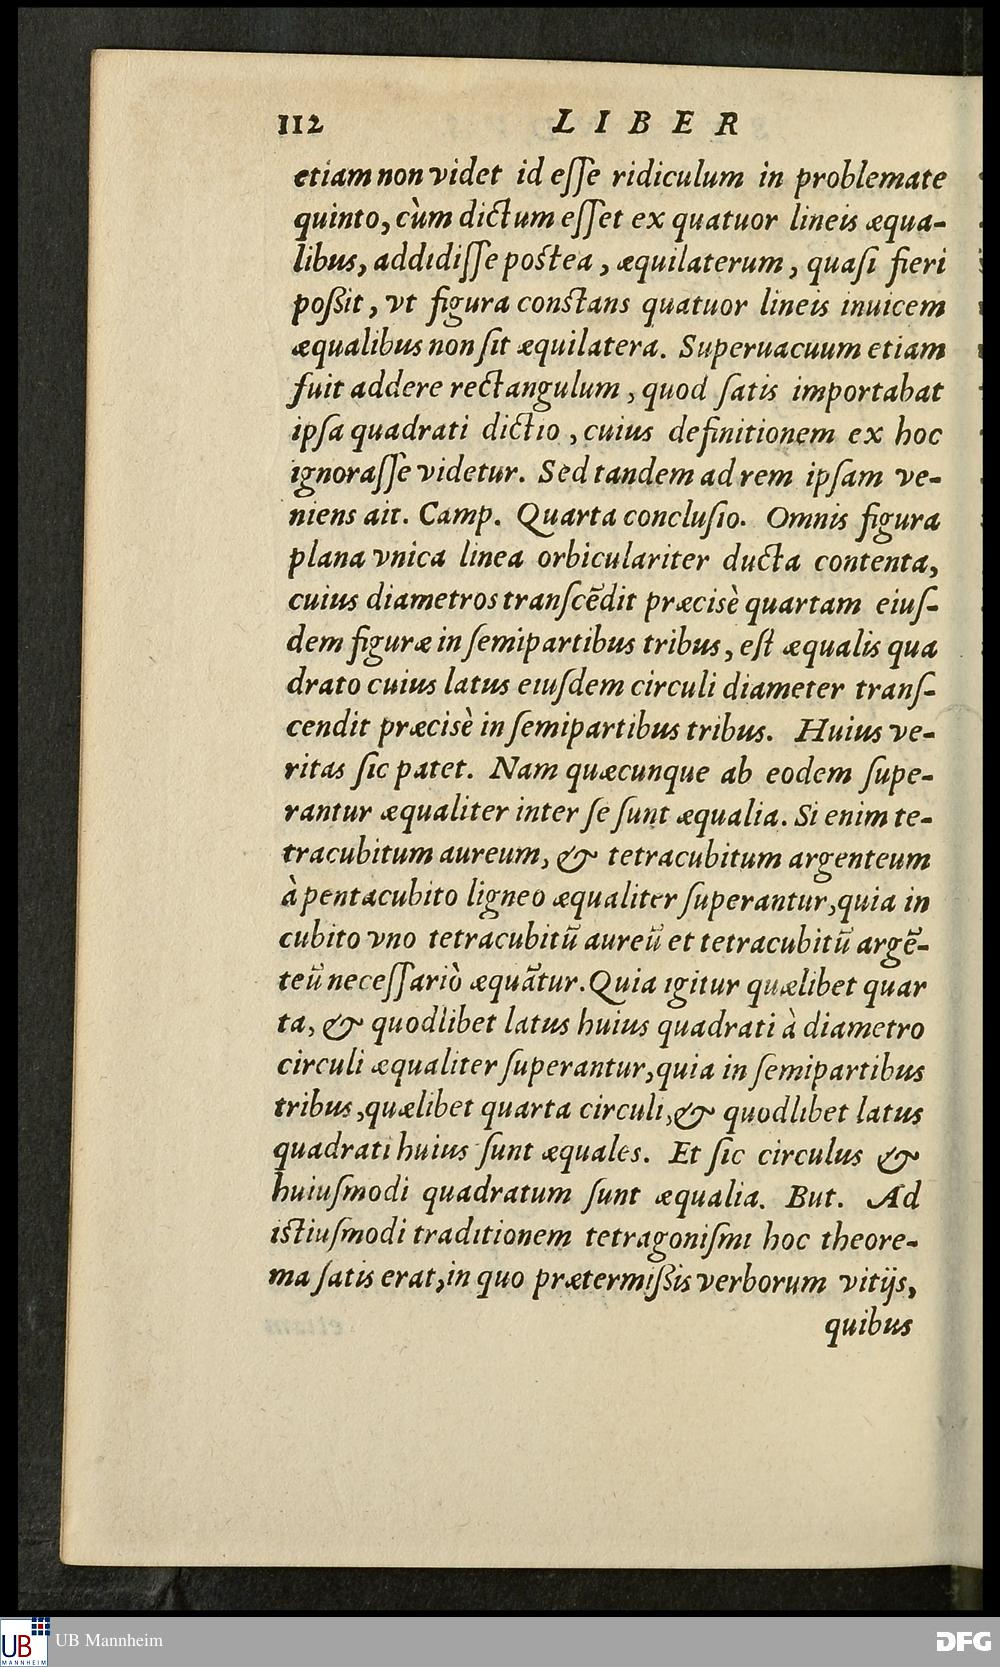 112 LIBER
etiam non videt id eſſe ridiculum in problemate
quinto, cùm dictum eſſet ex quatuor lineis æqua-
libus, addidiſſe postea, æquilaterum, quaſi fieri
poßit, vt figura constans quatuor lineis inuicem
æqualibus non ſit æquilatera. Superuacuum etiam
fuit addere rectangulum, quod ſatis importabat
ipſa quadrati dictio, cuius definitionem ex hoc
ignoraſſe videtur. Sed tandem ad rem ipſam ve-
niens ait. Camp. Quarta concluſio. Omnis figura
plana vnica linea orbiculariter ducta contenta,
cuius diametros tranſcēdit præcisè quartam eiuſ-
dem figuræ in ſemipartibus tribus, eſt æqualis qua
drato cuius latus eiuſdem circuli diameter tranſ-
cendit præcisè in ſemipartibus tribus. Huius ve-
ritas ſic patet. Nam quæcunque ab eodem ſupe-
rantur æqualiter inter ſe ſunt æqualia. Si enim te-
tracubitum aureum, & tetracubitum argenteum
à pentacubito ligneo æqualiter ſuperantur, quia in
cubito vno tetracubitū aureū et tetracubitū argē-
teū neceſſariò æquātur. Quia igitur quælibet quar
ta, & quodlibet latus huius quadrati à diametro
circuli æqualiter ſuperantur, quia in ſemipartibus
tribus, quælibet quarta circuli, & quodlibet latus
quadrati huius ſunt æquales. Et ſic circulus &
huiuſmodi quadratum ſunt æqualia. But. Ad
istiuſmodi traditionem tetragoniſmi hoc theore-
ma ſatis erat, in quo prætermißis verborum vitijs,
quibus
UB MANNHEIM
UB Mannheim
DFG